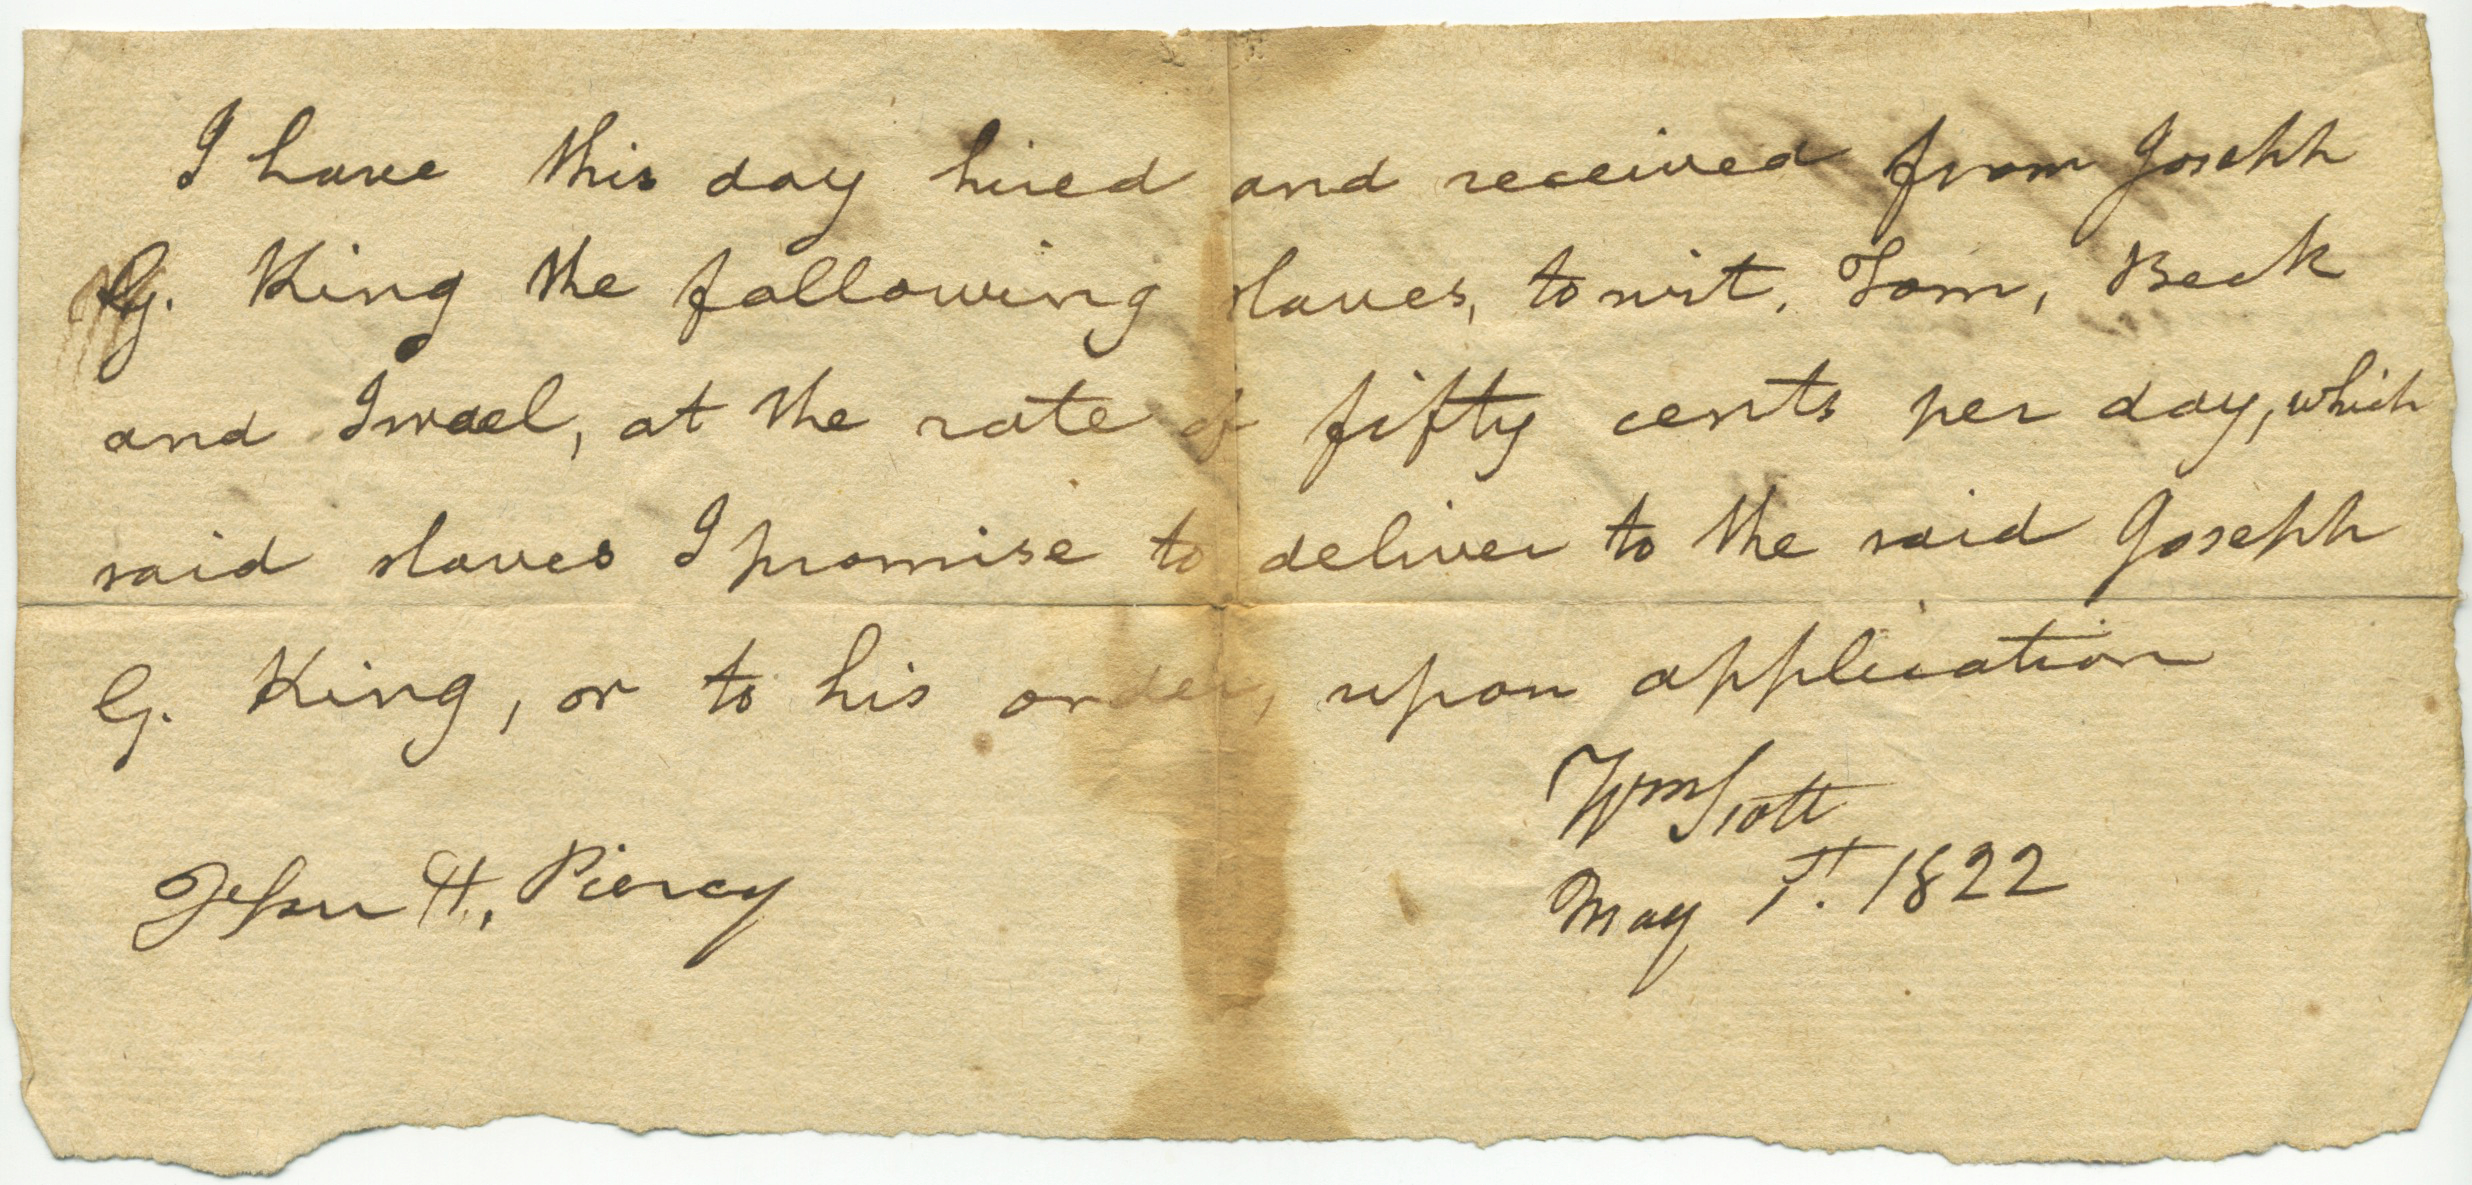 I have this day hired and received from Joseph
G. King the following slaves, to wit. Tom, Beck
and Israel, at the rate of fifty cents per day, which
said slaves I promise to deliver to the said Joseph
G. King, or to his order, upon application
Wm Scott
May 1st. 1822
H. Piercy